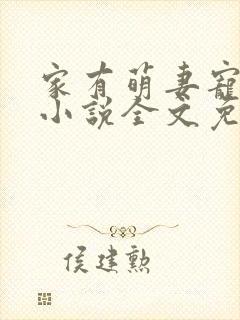 家有萌妻宠
小説全文免
侯建勲